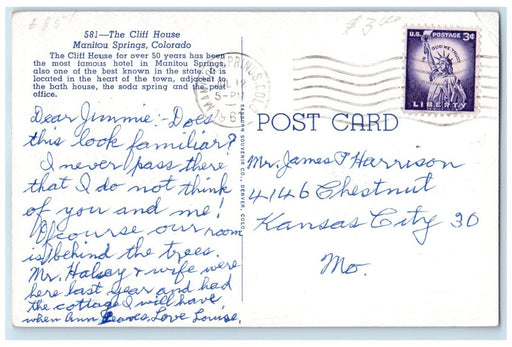 581—The Cliff House
Manitou Springs, Colorado
The Cliff House for over 50 years has been
the most famous hotel in Manitou Springs,
also one of the best known in the state. It is
located in the heart of the town, adjacent to
the bath house, the soda spring and the post
office.
Dear Jimmie - Does
this look familiar?
I never pass there
that I do not think
of you and me!
Of course our room
is behind the trees.
Mr. Halsey & wife were
here last year and had
the cottage I will have
when Ann leaves. Love Louise.
SANBORN SOUVENIR CO., DENVER, COLO.
MANITOU SPRINGS, COLO.
5-PM
U.S. POSTAGE 3¢
IN GOD WE TRUST
LIBERTY
POST CARD
Mr. James P Harrison
4146 Chestnut
Kansas City 30
Mo.